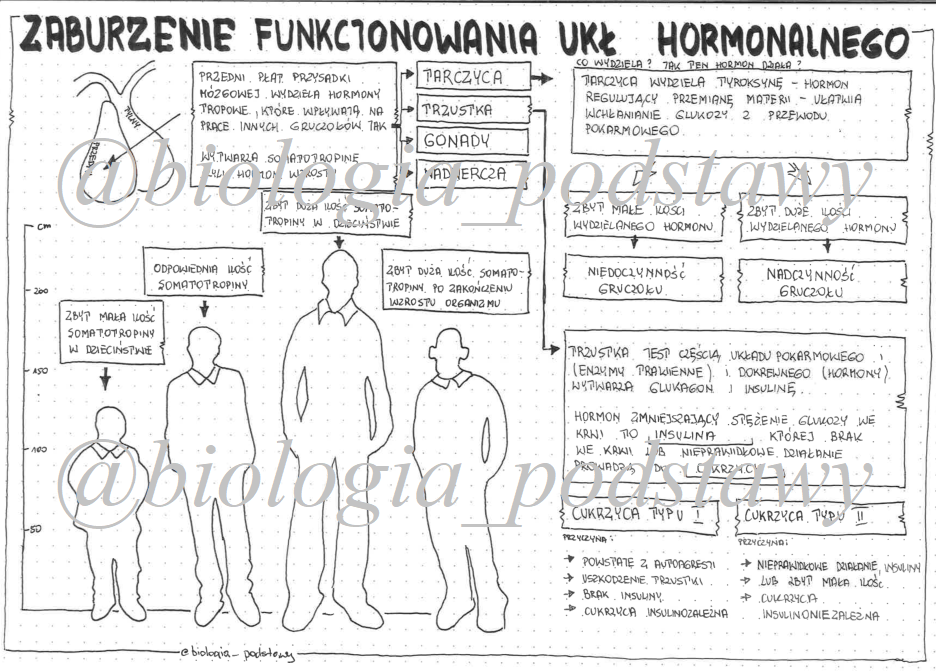 ZABURZENIE FUNKCJONOWANIA UKŁ HORMONALNEGO
TYLNY
PRZEDNI
PRZEDNI PŁAT PRZYSADKI
MÓZGOWEJ WYDZIELA HORMONY
TROPOWE, KTÓRE WPŁYWAJĄ NA
PRACĘ INNYCH GRUCZOŁÓW TAK
WYTWARZA SOMATOTROPINĘ
CZYLI HORMON WZROSTU
TARCZYCA
TRZUSTKA
GONADY
NADNERCZA
CO WYDZIELA? JAK TEN HORMON DZIAŁA?
TARCZYCA WYDZIELA TYROKSYNĘ - HORMON
REGULUJĄCY PRZEMIANĘ MATERII - UŁATWIA
WCHŁANIANIE GLUKOZY Z PRZEWODU
POKARMOWEGO
@biologia_podstawy
ZBYT MAŁE ILOŚCI
WYDZIELANEGO HORMONU
ZBYT DUŻE ILOŚCI
WYDZIELANEGO HORMONU
NIEDOCZYNNOŚĆ
GRUCZOŁU
NADCZYNNOŚĆ
GRUCZOŁU
cm
200
150
100
50
ZBYT MAŁA ILOŚĆ
SOMATOTROPINY
W DZIECIŃSTWIE
ODPOWIEDNIA ILOŚĆ
SOMATOTROPINY
ZBYT DUŻA ILOŚĆ SOMATO-
TROPINY W DZIECIŃSTWIE
ZBYT DUŻA ILOŚĆ SOMATO-
TROPINY PO ZAKOŃCZENIU
WZROSTU ORGANIZMU
TRZUSTKA JEST CZĘŚCIĄ UKŁADU POKARMOWEGO I
(ENZYMY TRAWIENNE) I DOKREWNEGO (HORMONY)
WYTWARZA GLUKAGON I INSULINĘ
HORMON ZMNIEJSZAJĄCY STĘŻENIE GLUKOZY WE
KRWI TO INSULINA KTÓREJ BRAK
WE KRWI LUB NIEPRAWIDŁOWE DZIAŁANIE
PROWADZĄ DO CUKRZYCY
@biologia_podstawy
CUKRZYCA TYPU I
PRZYCZYNA:
→ POWSTAJE Z AUTOAGRESJI
→ USZKODZENIE TRZUSTKI
→ BRAK INSULINY
→ CUKRZYCA INSULINOZALEŻNA
CUKRZYCA TYPU II
PRZYCZYNA:
→ NIEPRAWIDŁOWE DZIAŁANIE INSULINY
→ LUB ZBYT MAŁA ILOŚĆ
→ CUKRZYCA
INSULINONIEZALEŻNA
@biologia_podstawy